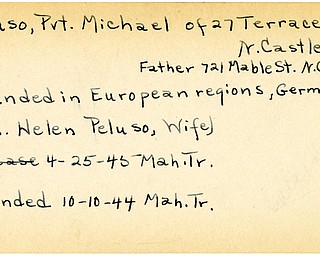 uso, Pvt. Michael of 27 Terrace
N. Castle
Father 721 Mable St. N.C
nded in European regions, Germ
. Helen Peluso, Wife)
ease 4-25-45 Mah. Tr.
nded 10-10-44 Mah. Tr.